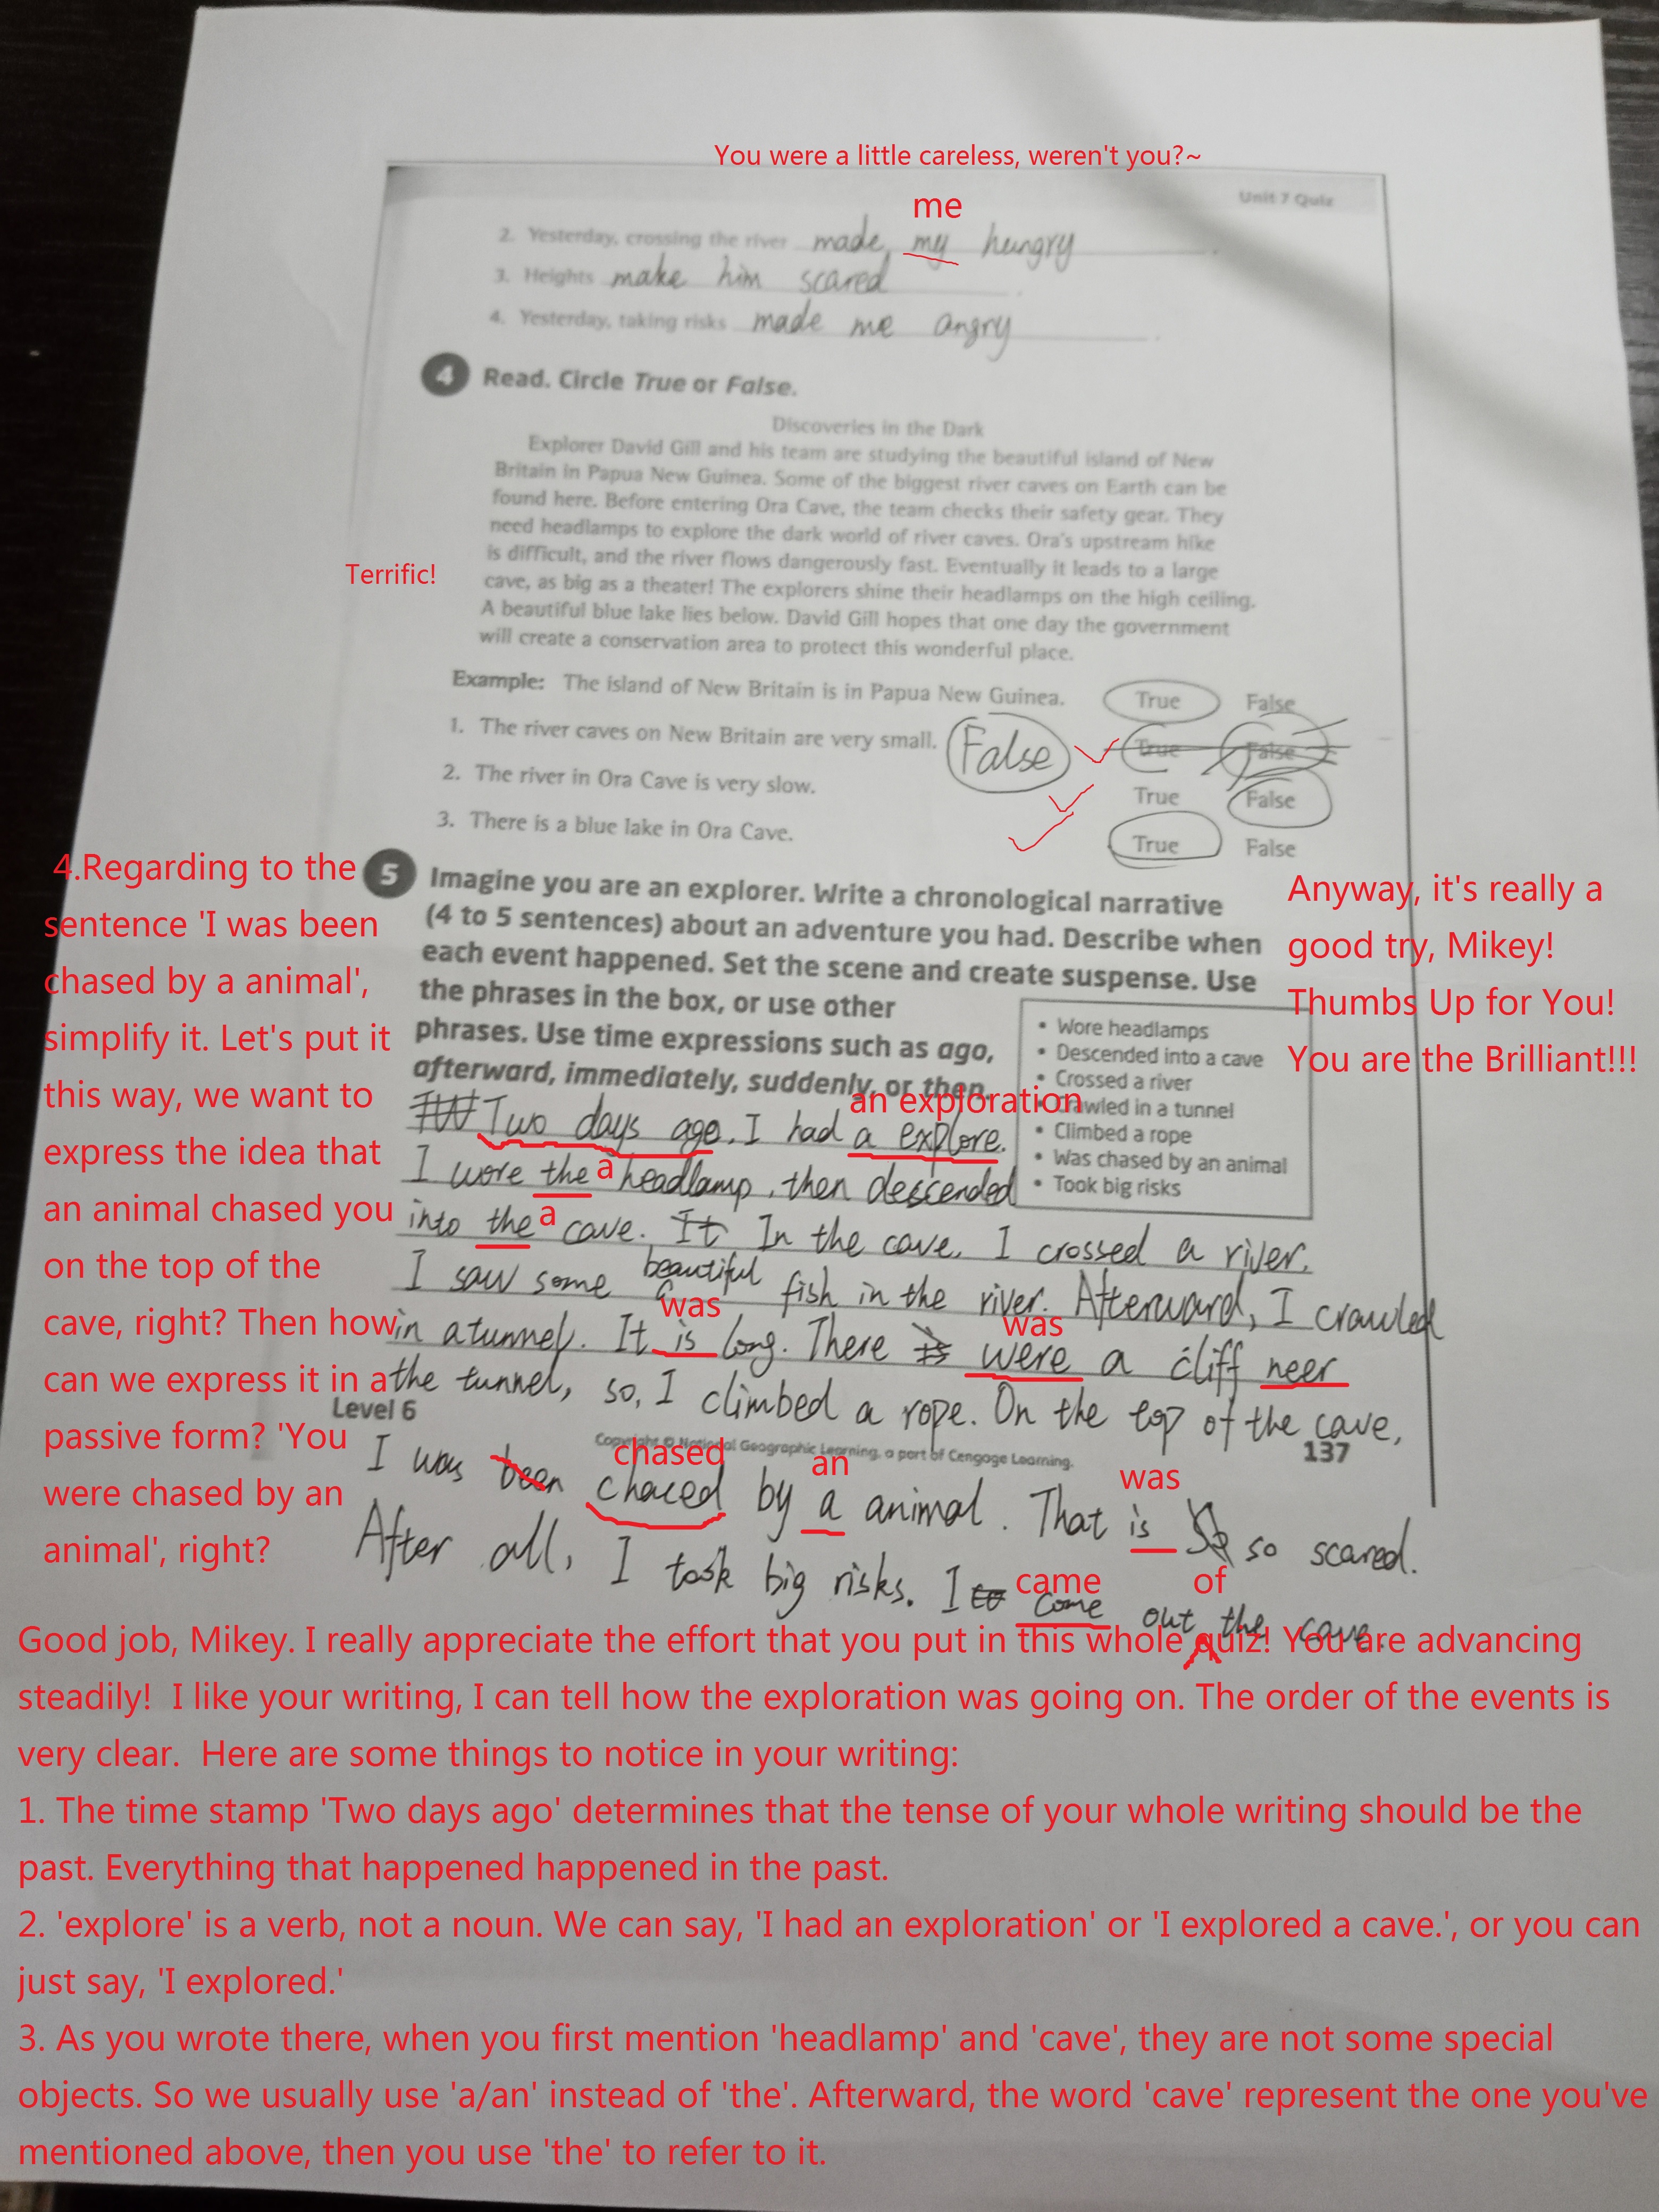 You were a little careless, weren't you?~
Unit 7 Quiz
me
2. Yesterday, crossing the river made my hungry.
3. Heights make him scared.
4. Yesterday, taking risks made me angry.
4 Read. Circle True or False.
Discoveries in the Dark
Explorer David Gill and his team are studying the beautiful island of New
Britain in Papua New Guinea. Some of the biggest river caves on Earth can be
found here. Before entering Ora Cave, the team checks their safety gear. They
need headlamps to explore the dark world of river caves. Ora's upstream hike
is difficult, and the river flows dangerously fast. Eventually it leads to a large
Terrific!
cave, as big as a theater! The explorers shine their headlamps on the high ceiling.
A beautiful blue lake lies below. David Gill hopes that one day the government
will create a conservation area to protect this wonderful place.
Example: The island of New Britain is in Papua New Guinea. True False
1. The river caves on New Britain are very small. False True False
2. The river in Ora Cave is very slow. True False
3. There is a blue lake in Ora Cave. True False
5 Imagine you are an explorer. Write a chronological narrative
(4 to 5 sentences) about an adventure you had. Describe when
each event happened. Set the scene and create suspense. Use
the phrases in the box, or use other
phrases. Use time expressions such as ago,
afterward, immediately, suddenly, or then.
• Wore headlamps
• Descended into a cave
• Crossed a river
• Crawled in a tunnel
• Climbed a rope
• Was chased by an animal
• Took big risks
an exploration
Two days ago, I had a explore.
a
I wore the headlamp, then descended
a
into the cave. It In the cave, I crossed a river.
I saw some beautiful fish in the river. Afterward, I crawled
was was
in a tunnel. It is long. There is were a cliff neer
the tunnel, so, I climbed a rope. On the top of the cave,
Level 6
Copyright © National Geographic Learning, a part of Cengage Learning.
137
chased an was
I was been chaced by a animal. That is so scared.
came of
After all, I took big risks. I to come out the cave.
4.Regarding to the
sentence 'I was been
chased by a animal',
simplify it. Let's put it
this way, we want to
express the idea that
an animal chased you
on the top of the
cave, right? Then how
can we express it in a
passive form? 'You
were chased by an
animal', right?
Anyway, it's really a
good try, Mikey!
Thumbs Up for You!
You are the Brilliant!!!
Good job, Mikey. I really appreciate the effort that you put in this whole quiz! You are advancing
steadily! I like your writing, I can tell how the exploration was going on. The order of the events is
very clear. Here are some things to notice in your writing:
1. The time stamp 'Two days ago' determines that the tense of your whole writing should be the
past. Everything that happened happened in the past.
2. 'explore' is a verb, not a noun. We can say, 'I had an exploration' or 'I explored a cave.', or you can
just say, 'I explored.'
3. As you wrote there, when you first mention 'headlamp' and 'cave', they are not some special
objects. So we usually use 'a/an' instead of 'the'. Afterward, the word 'cave' represent the one you've
mentioned above, then you use 'the' to refer to it.